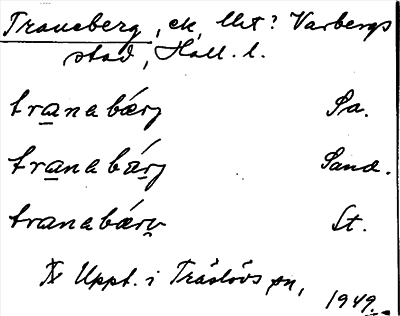 Traneberg, ek, lht? Varbergs
stad, Hall. l.
tranabærj Pa.
tranabárj Sand.
tranabærv St.
Uppt. i Träslövs sn,
1949.